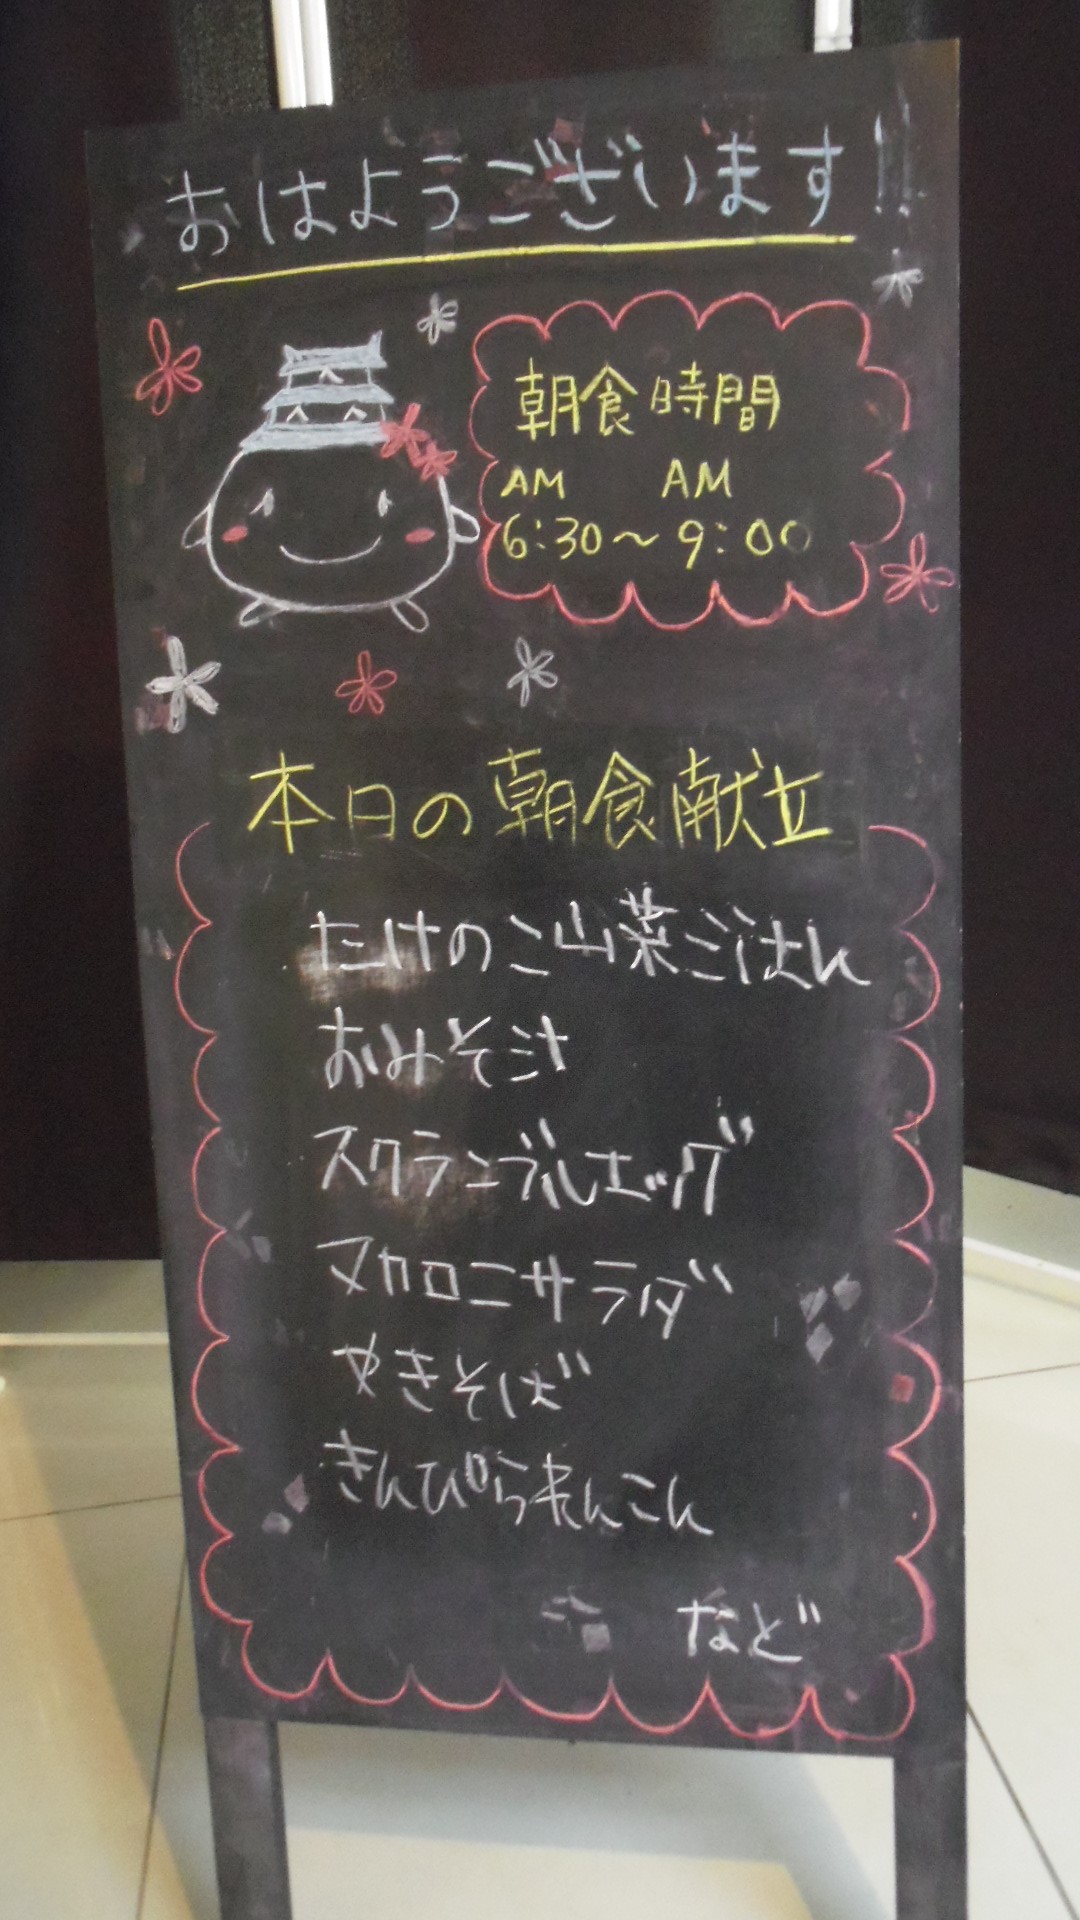 おはようございます!!
朝食時間
AM AM
6:30〜9:00
本日の朝食献立
たけのこ山菜ごはん
おみそ汁
スクランブルエッグ
マカロニサラダ
やきそば
きんぴられんこん
など